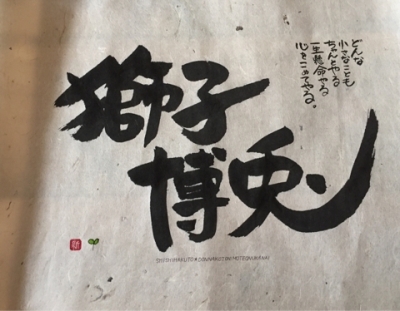 獅子
博兎
どんな
小さなことも
ちゃんとやる
一生懸命やる
心をこめてやる。